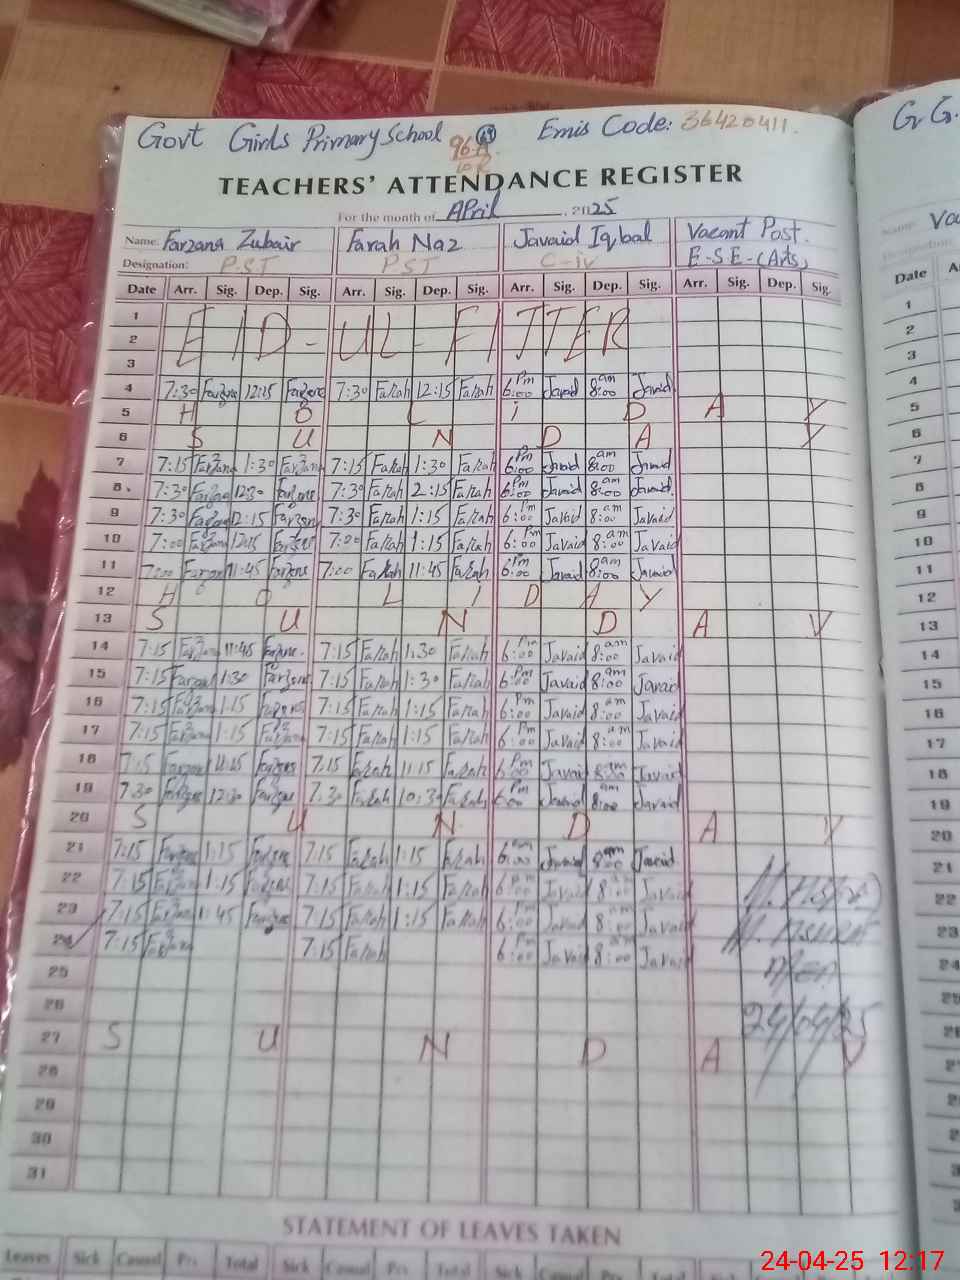 Govt Girls Primary School 96-A Emis Code: 36420411.
TEACHERS' ATTENDANCE REGISTER
For the month of April, 2025
Name: Farzana Zubair Farah Naz Javaid Iqbal Vacant Post.
Designation: P.S.T PST C-iv E-S-E-(Arts)
Date Arr. Sig. Dep. Sig. Arr. Sig. Dep. Sig. Arr. Sig. Dep. Sig. Arr. Sig. Dep. Sig.
1
2 EID-UL-FITTER
3
4 7:30 Farzana 12:15 Farzana 7:30 Farah 12:15 Farah 6:00 Pm Javaid 8:00 am Javaid
5 H O L i D A Y
6 S U N D A Y
7 7:15 Farzana 1:30 Farzana 7:15 Farah 1:30 Farah 6:00 Pm Javaid 8:00 am Javaid
8 7:30 Farzana 12:30 Farzana 7:30 Farah 2:15 Farah 6:00 Pm Javaid 8:00 am Javaid
9 7:30 Farzana 12:15 Farzana 7:30 Farah 1:15 Farah 6:00 Pm Javaid 8:00 am Javaid
10 7:00 Farzana 12:15 Farzana 7:00 Farah 1:15 Farah 6:00 Pm Javaid 8:00 am Javaid
11 7:00 Farzana 11:45 Farzana 7:00 Farah 11:45 Farah 6:00 Pm Javaid 8:00 am Javaid
12 H O L I D A Y
13 S U N D A Y
14 7:15 Farzana 11:45 Farzana 7:15 Farah 1:30 Farah 6:00 Pm Javaid 8:00 am Javaid
15 7:15 Farzana 1:30 Farzana 7:15 Farah 1:30 Farah 6:00 Pm Javaid 8:00 am Javaid
16 7:15 Farzana 1:15 Farzana 7:15 Farah 1:15 Farah 6:00 Pm Javaid 8:00 am Javaid
17 7:15 Farzana 1:15 Farzana 7:15 Farah 1:15 Farah 6:00 Pm Javaid 8:00 am Javaid
18 7:15 Farzana 11:15 Farzana 7:15 Farah 11:15 Farah 6:00 Pm Javaid 8:00 am Javaid
19 7:30 Farzana 12:30 Farzana 7:30 Farah 10:30 Farah 6:00 Pm Javaid 8:00 am Javaid
20 S U N D A Y
21 7:15 Farzana 1:15 Farzana 7:15 Farah 1:15 Farah 6:00 Javaid 8:00 am Javaid
22 7:15 Farzana 1:15 Farzana 7:15 Farah 1:15 Farah 6:00 Pm Javaid 8:00 am Javaid
23 7:15 Farzana 1:45 Farzana 7:15 Farah 1:15 Farah 6:00 Pm Javaid 8:00 am Javaid
24 7:15 Farzana 7:15 Farah 6:00 Pm Javaid 8:00 am Javaid
MEA
25
26 24/04/25
27 S U N D A Y
28
29
30
31
STATEMENT OF LEAVES TAKEN
Leaves Sick Casual Prv. Total Sick Casual Prv. Total Sick Casual
G G.
Va
Name:
Designation:
Date
1
2
3
4
5
6
7
8
9
10
11
12
13
14
15
16
17
18
19
20
21
22
23
24
25
26
24-04-25 12:17